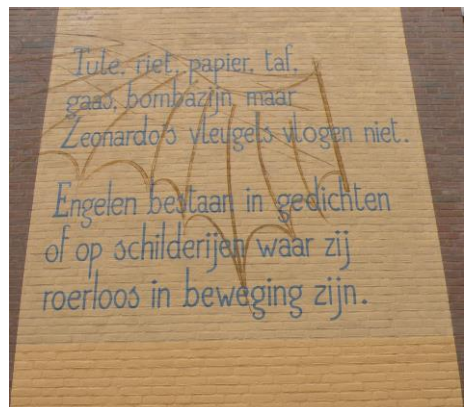 Tule, riet, papier, taf,
gaas, bombazijn, maar
Leonardo's vleugels vlogen niet.
Engelen bestaan in gedichten
of op schilderijen waar zij
roerloos in beweging zijn.